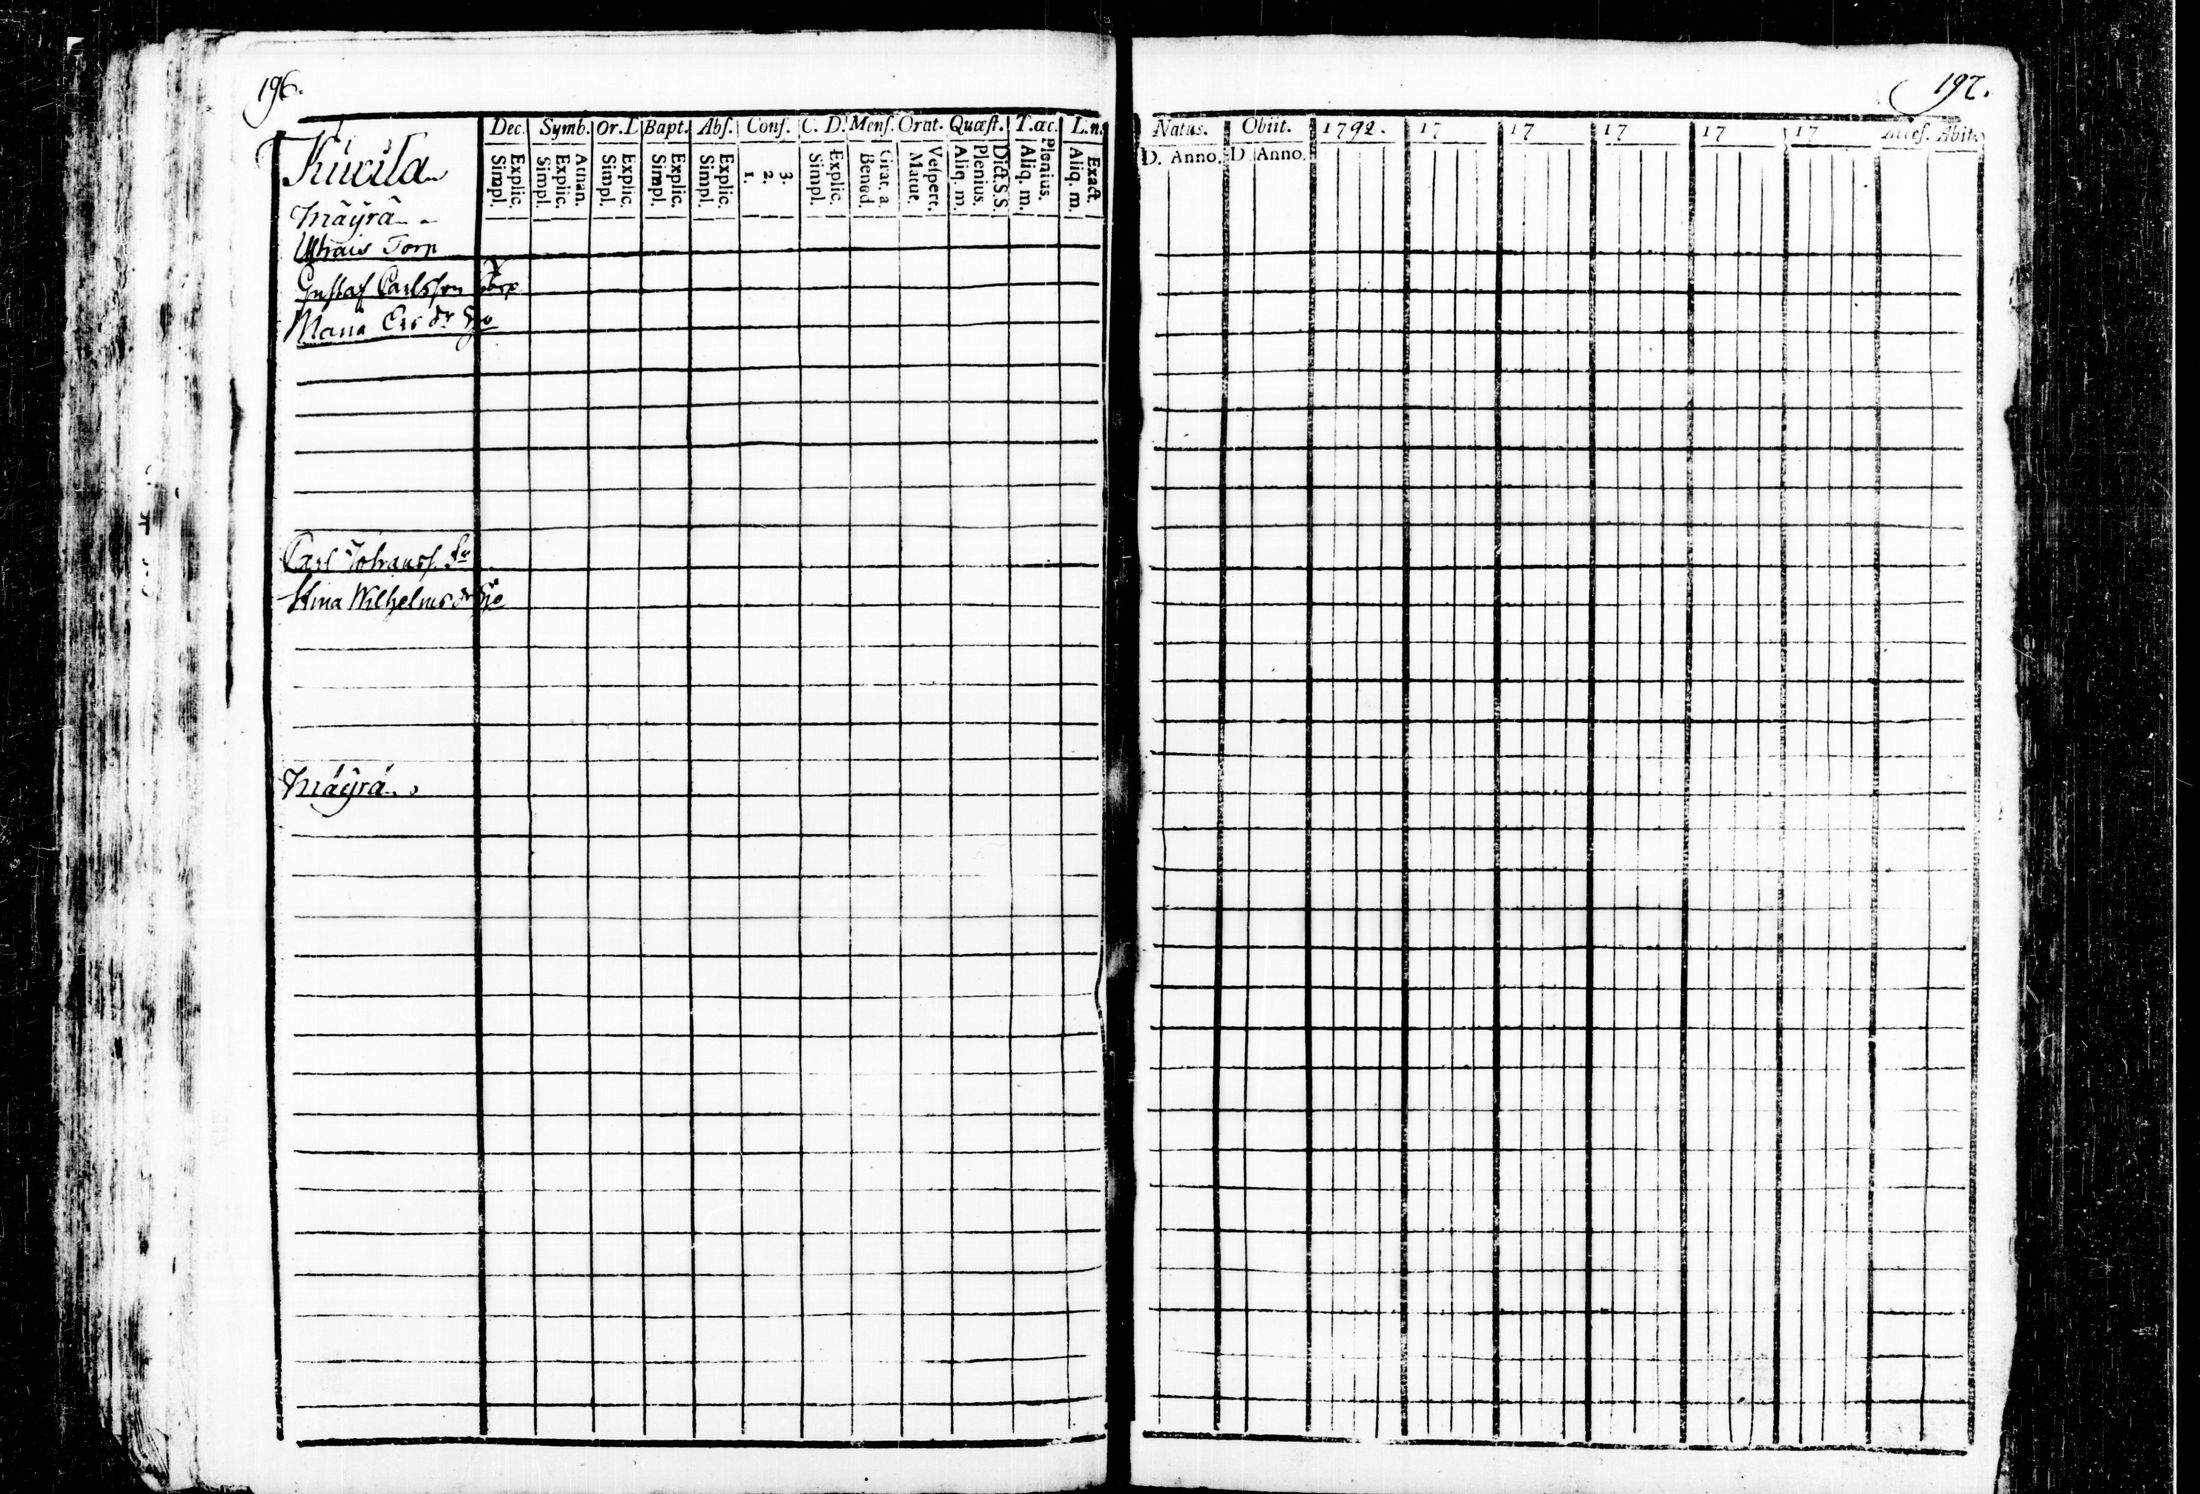 196.
Dec. Symb. Or. D. Bapt. Abſ. Conf. C. D. Menſ. Orat. Quæſt. T. œc. L. n.
Explic. Simpl.
Athan. Explic. Simpl.
Explic. Simpl.
Explic. Simpl.
Explic. Simpl.
3. 2. 1.
Explic. Simpl.
Grat. a. Bened.
Veſpert. Matut.
Dict. S. S. Plenius. Aliq. m.
Plenius. Aliq. m.
Exact. Aliq. m.
Kuwila
Mäyrä
Torp
Gustaf Carlsson
Maria
Carl Johanss.
Stina Wilhelms dr
Mäyrä
197.
Natus. Obiit. 1792. 17 17 17 17 17 Acceſ. Abit.
D. Anno. D. Anno.